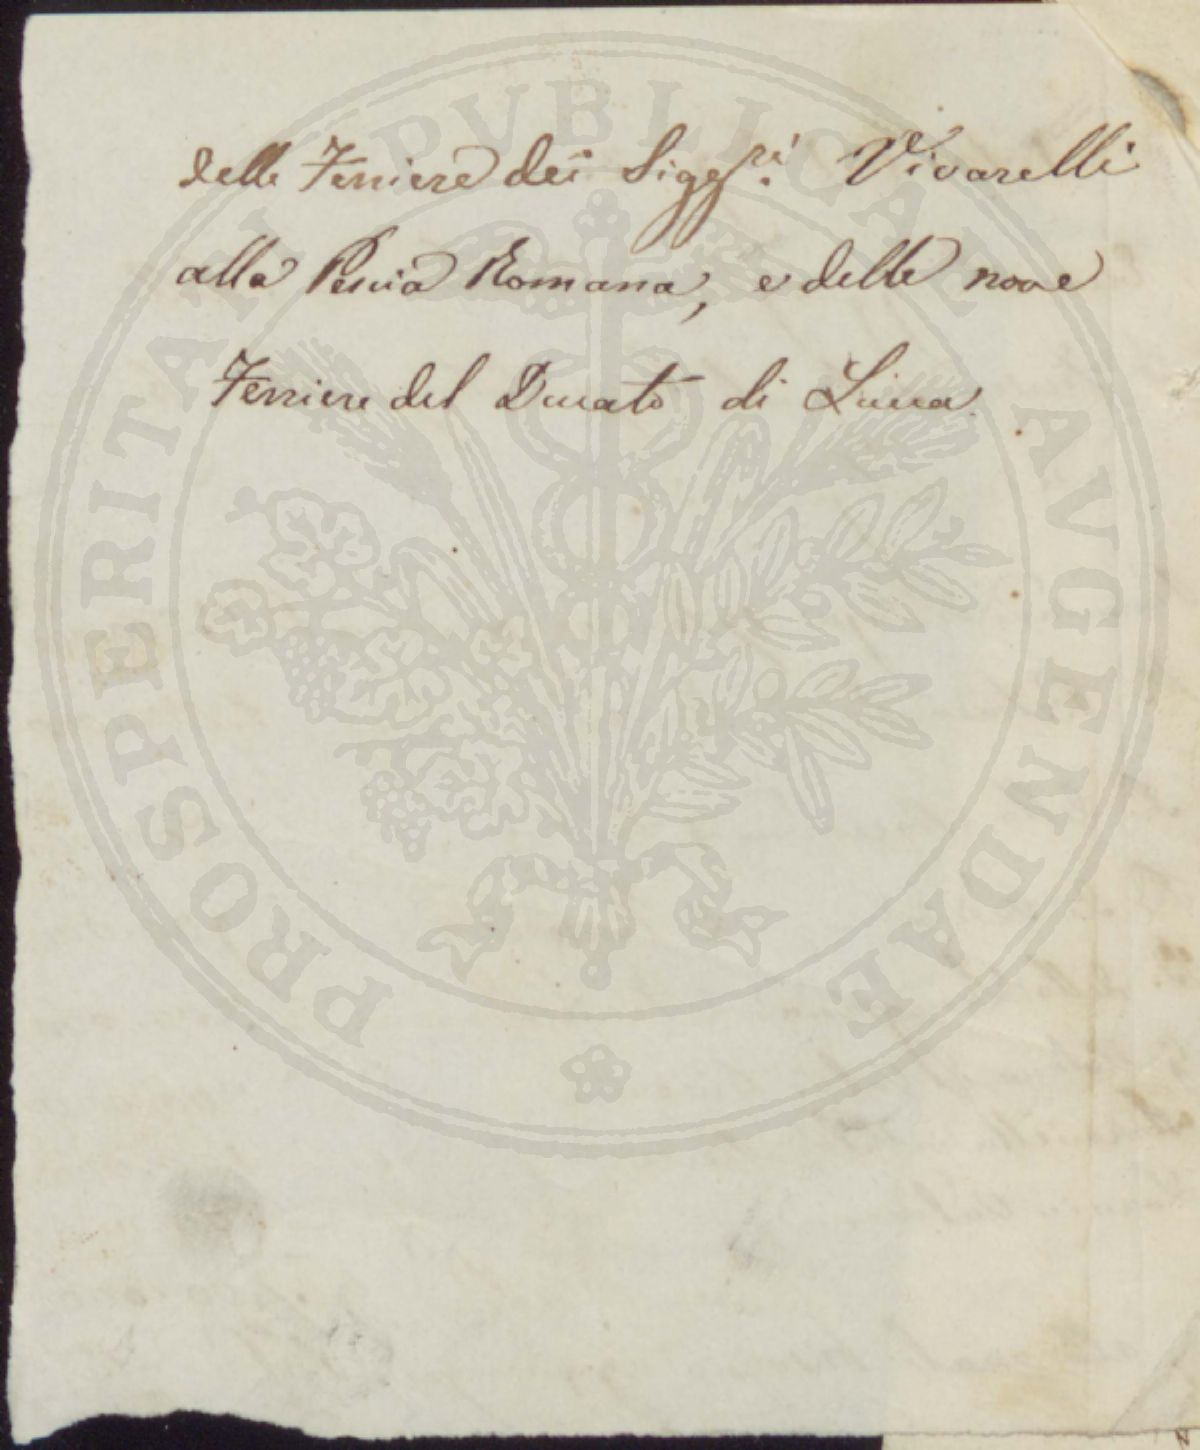 delle Ferriere dei Sigg.ri Vivarelli
alla Pescia Romana, e delle nove
Ferriere del Ducato di Lucca.
PROSPERITATI PVBLICAE AVGENDAE